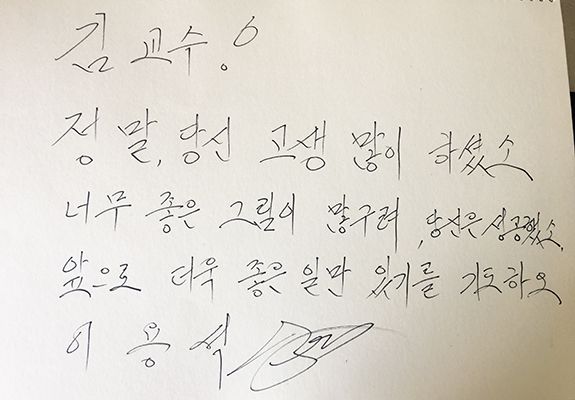 김 교수.
정말, 당신 고생 많이 하셨소
너무 좋은 그림이 많구려, 당신은 성공했소.
앞으로 더욱 좋은 일만 있기를 기도하오
이 용 석